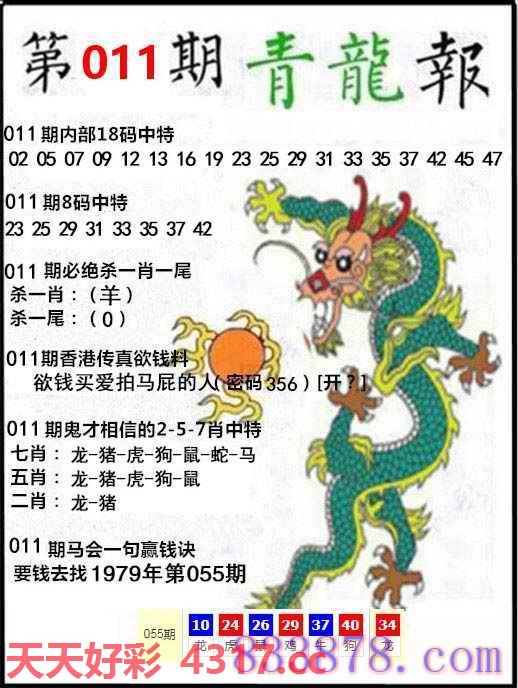 第011期青龍報
011期内部18码中特
02 05 07 09 12 13 16 19 23 25 29 31 33 35 37 42 45 47
011期8码中特
23 25 29 31 33 35 37 42
011 期必绝杀一肖一尾
杀一肖：（羊）
杀一尾：（0）
011期香港传真欲钱料
欲钱买爱拍马屁的人(密码356）[开？]
011期鬼才相信的2-5-7肖中特
七肖： 龙-猪-虎-狗-鼠-蛇-马
五肖： 龙-猪-虎-狗-鼠
二肖： 龙-猪
011期马会一句赢钱诀
要钱去找1979年第055期
055期 10 24 26 29 37 40 34
龙 虎 鼠 鸡 牛 狗 龙
天天好彩 4317.cc